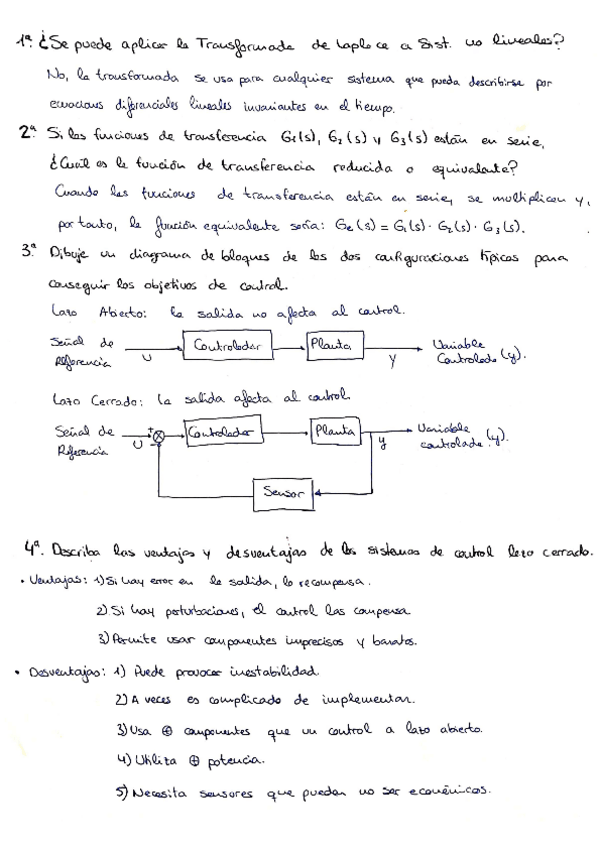 1ª. ¿Se puede aplicar la Transformada de Laplace a Sist. no lineales?
No, la transformada se usa para cualquier sistema que pueda describirse por
ecuaciones diferenciales lineales invariantes en el tiempo.
2ª. Si las funciones de transferencia G1(s), G2(s) y G3(s) están en serie,
¿Cuál es la función de transferencia reducida o equivalente?
Cuando las funciones de transferencia están en serie, se multiplican y,
por tanto, la función equivalente sería: Ge(s) = G1(s) · G2(s) · G3(s).
3ª. Dibuje un diagrama de bloques de las dos configuraciones típicas para
conseguir los objetivos de control.
Lazo Abierto: la salida no afecta al control.
Señal de Referencia
U
Controlador
Planta
y
Variable Controlada (y).
Lazo Cerrado: la salida afecta al control
Señal de Referencia
U
+
-
Controlador
Planta
y
Variable controlada (y).
Sensor
4ª. Describa las ventajas y desventajas de los sistemas de control lazo cerrado.
• Ventajas: 1) Si hay error en la salida, lo recompensa.
2) Si hay perturbaciones, el control las compensa
3) Permite usar componentes imprecisos y baratos.
• Desventajas: 1) Puede provocar inestabilidad.
2) A veces es complicado de implementar.
3) Usa ⊕ componentes que un control a lazo abierto.
4) Utiliza ⊕ potencia.
5) Necesita sensores que pueden no ser económicos.